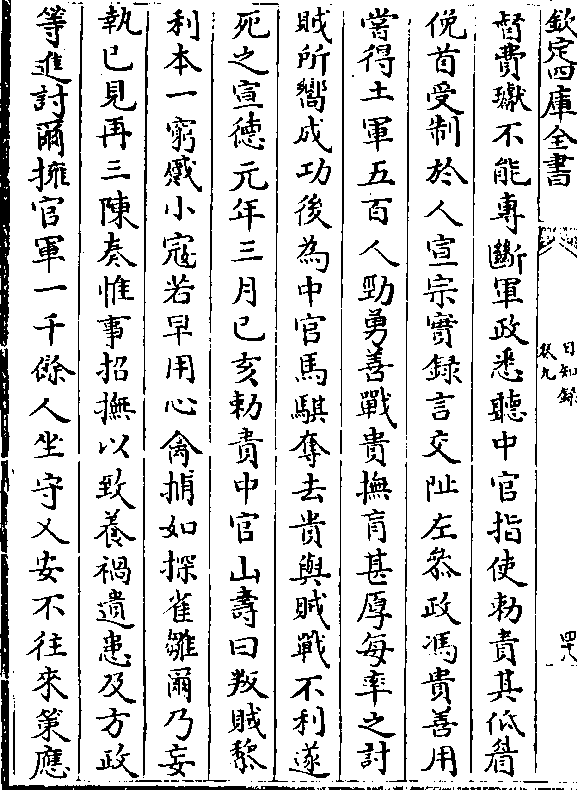 欽定四庫全書
日知錄
卷九
四十八
督費瓛不能專斷軍政悉聽中官指使勅責其低眉
俛首受制於人宣宗實録言交阯左叅政馮貴善用
嘗得土軍五百人勁勇善戰貴撫育甚厚每率之討
賊所嚮成功後為中官馬騏奪去貴與賊戰不利遂
死之宣德元年三月己亥勅責中官山壽曰叛賊黎
利本一窮蹙小冦若早用心禽捕如探雀雛爾乃妄
執已見再三陳奏惟事招撫以致養禍遺患及方政
等進討爾擁官軍一千餘人坐守乂安不往來策應